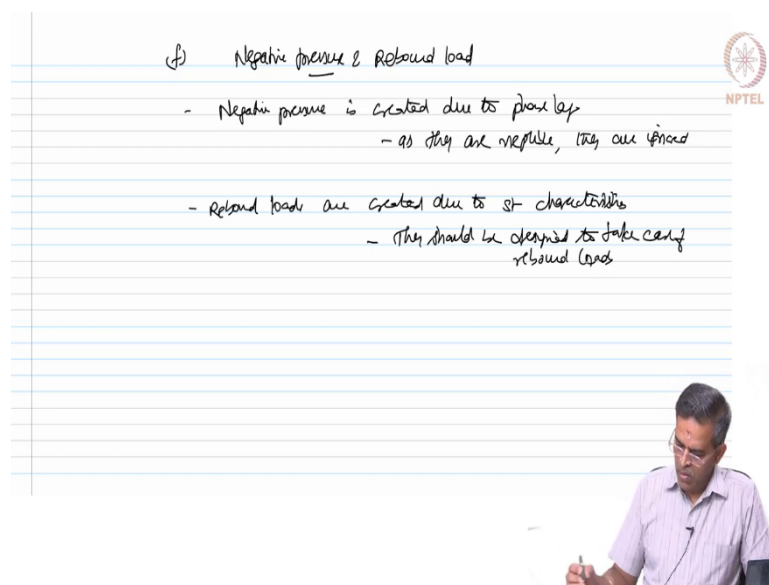 f) Negative pressure & Rebound load
NPTEL
- Negative pressure is created due to phase lag
- as they are negligible, they are ignored
- Rebound loads are created due to st characteristics
- They should be designed to take care of
rebound loads